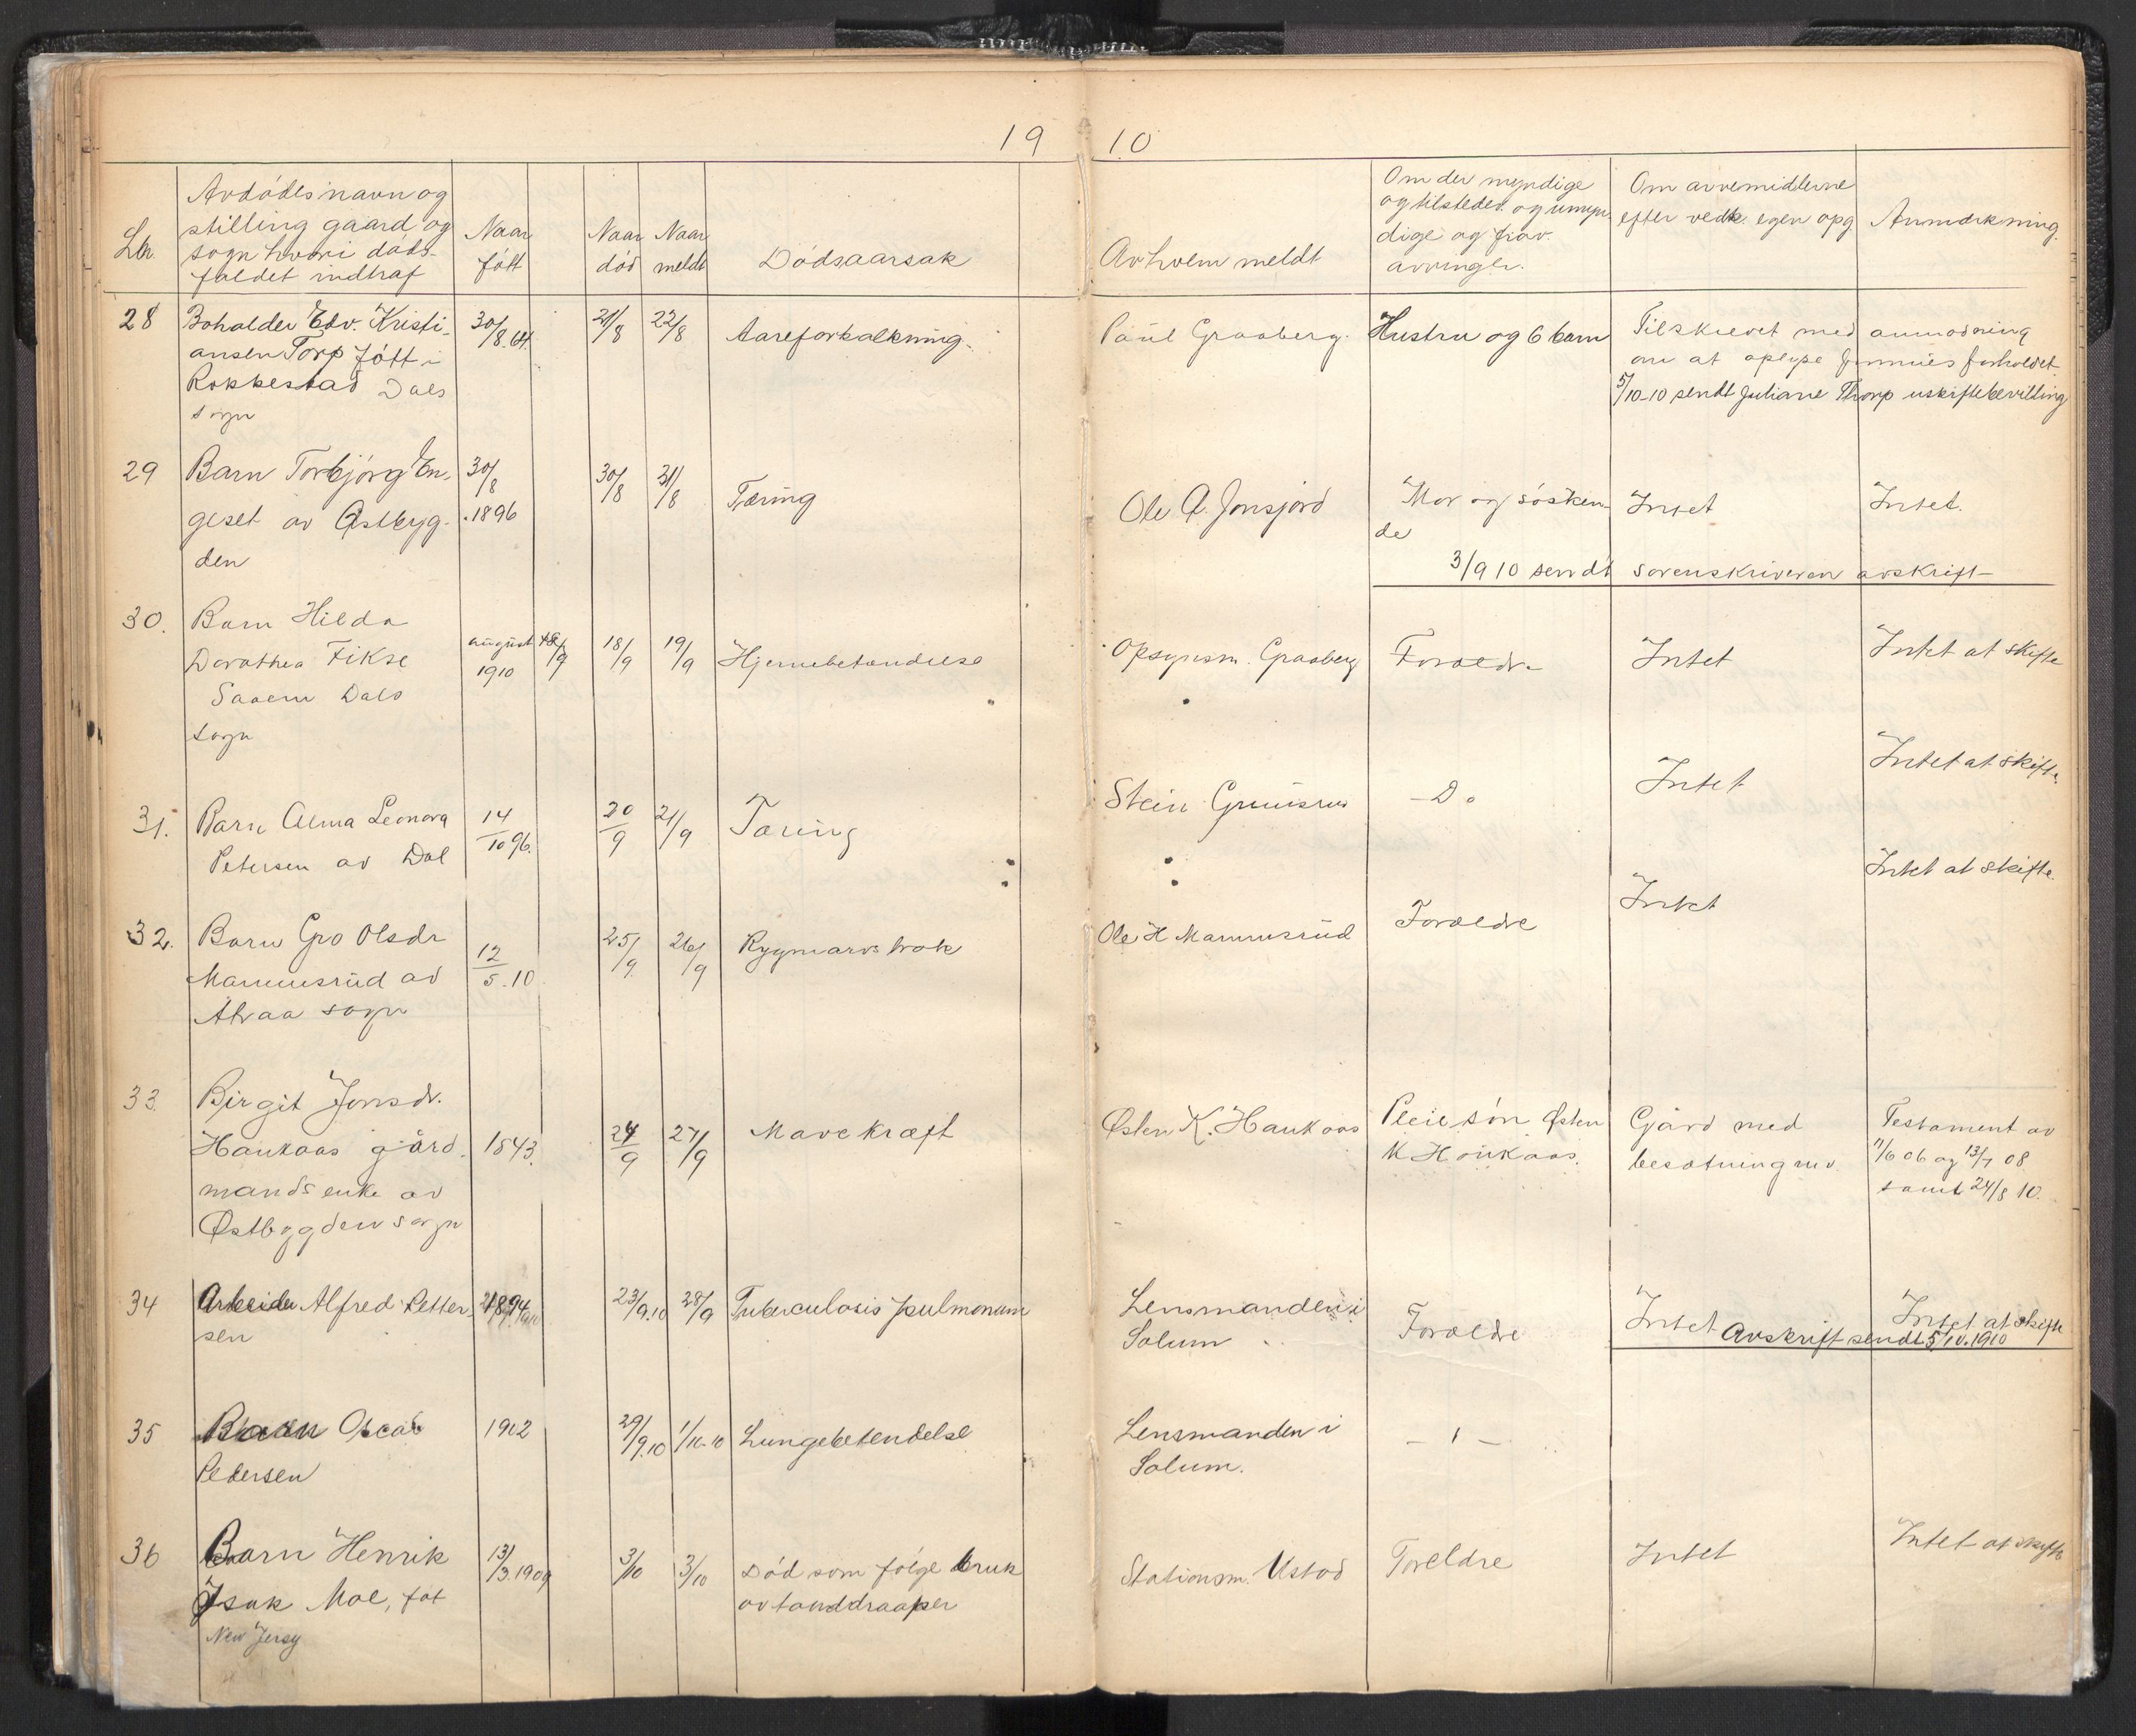 19 10
Lnr.
Avdødes navn og
stilling gaard og
sogn hvori døds-
faldet indtraf
Naar
født
Naar
død
Naar
meldt
Dødsaarsak
Av hvem meldt
Om der myndige
og tilstedev. og umyn-
dige og frav.
arvinger.
Om arvemidlerne
efter vedk. egen opg
Anmerkning.
28 Boholder Edv. Kristi- 30/8.64. 21/8 22/8 Aareforkalkning. Paul Graaberg. Hustru og 6 barn Tilskrevet med anmodning
ansen Torp født i om at oplyse formues forholdet
Rakkestad Dals 5/10-10 sendt Juliane Thorp uskiftebevilling
sogn
29 Barn Torbjørg En- 30/8 30/8 31/8 Tæring Ole A. Jonsjord Mor og søsken- Intet Intet.
geset av Østbyg- 1896 de
den 3/9 10 sendt sorenskriveren avskrift
30. Barn Hilda
Dorothea Fikse august 1910 18/9 18/9 19/9 Hjernebetændelse Opsynsm. Graaberg Foræeldre Intet Intet at skifte
Saaem Dals
sogn
31. Barn Alma Leonora 14/10 96. 20/9 21/9 Tæring Stein Do Intet Intet at skifte
Petersen av Dal
32. Barn Gro Olsdr 12/5.10 25/9 26/9 Rygmarvs brok Ole H Mannusrud Forældre Intet Intet at skifte.
Mannusrud av
Atraa sogn
33. Birgit Jonsdr.
Haukaas gård- 1843. 24/9 27/9 Mavekræft Østen K. Haukaas Pleiesøn Østen Gård med Testament av
mands enke av K Haukaas. besætning m.v. 11/6 06 og 13/7 08
Østbygden sogn samt 24/8 10.
34 Arbeider Alfred Petter- 1894 23/9.10 28/9 Tuberculosis pulmonum Lensmanden i Forældre Intet Intet at skifte
sen Solum Avskrift sendt 5/10.1910
35 Barn Oscar 1902 29/9.10 1/10-10 Lungebetendelse Lensmanden i — ı —
Pedersen Solum.
36 Barn Henrik 13/3.1909 3/10 3/10 Død som følge bruk Stationsm. Ustad Foreldre Intet Intet at skifte
Isak Moe, føt av tanddraaper
New Jersy